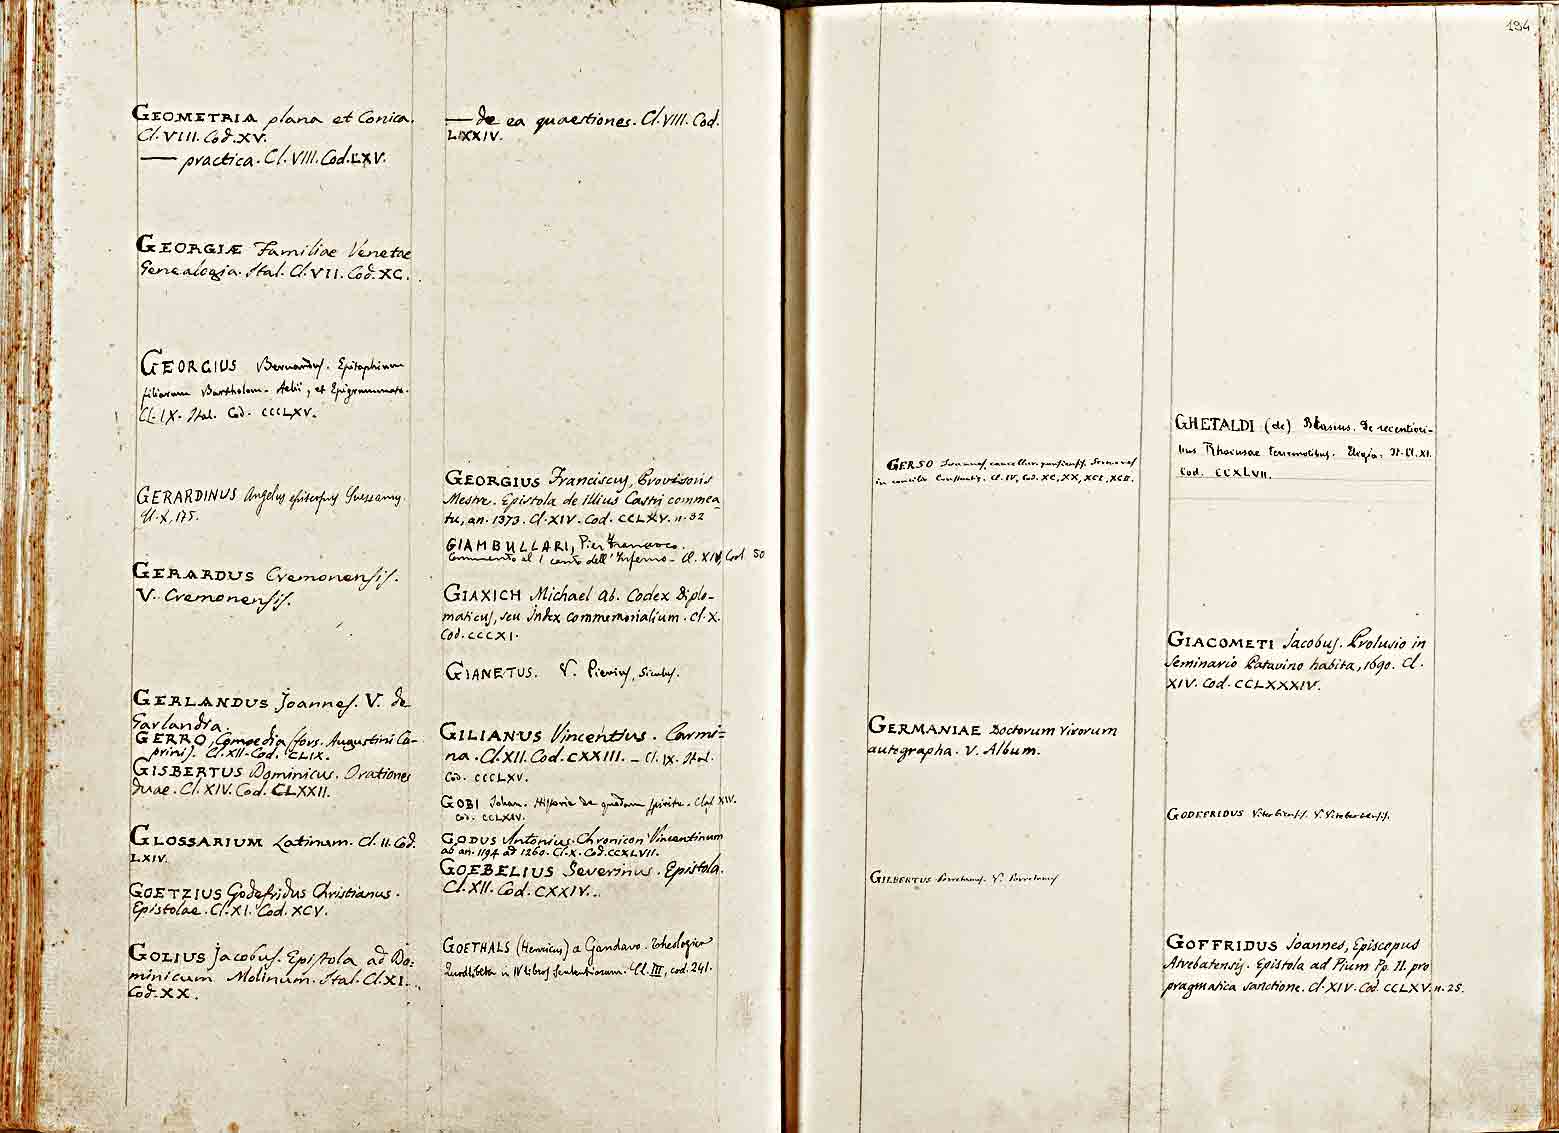 GEOMETRIA plana et Conica.
Cl. VIII. Cod. XV.
— practica. Cl. VIII. Cod. LXV.
GEORGIÆ Familiae Venetae
Genealogia. Ital. Cl. VII. Cod. XC.
GEORGIUS Bernardus. Epitaphium
filiarum Bartholom. et Epigrammata.
Cl. IX. Ital. Cod. CCCLXV.
GERARDINUS Angelus episcopus Suessanus.
Cl. X, 175.
GERARDUS Cremonensis.
V. Cremonensis.
GERLANDUS Joannes. V. de
Garlandra.
GERRO, Comoedia (fors. Augustini Ca-
prini). Cl. XII. Cod. CLIX.
GISBERTUS Dominicus. Orationes
duae. Cl. XIV. Cod. CLXXII.
GLOSSARIUM Latinum. Cl. II. Cod.
LXIV.
GOETZIUS Godefridus Christianus.
Epistolae. Cl. XI. Cod. XCV.
GOLIUS Jacobus. Epistola ad Do-
minicum Molinum. Ital. Cl. XI.
Cod. XX.
— de ea quaestiones. Cl. VIII. Cod.
LXXIV.
GEORGIUS Franciscus, Provisoris
Mestre. Epistola de illius Castri commea
tu, an. 1373. Cl. XIV. Cod. CCLXV. n. 32
GIAMBULLARI, Pier Francesco.
Commento al I canto dell'Inferno - Cl. XIV, Cod 50
GIAXICH Michael Ab. Codex Diplo-
maticus, seu Index commemorialium. Cl. X.
Cod. CCCXI.
GIANETUS. V. Pierius, Siculus.
GILIANUS Vincentius. Carmi=
na. Cl. XII. Cod. CXXIII. - Cl. IX. Ital.
Cod. CCCLXV.
GOBI Johan. Historia de quodam spiritu. Clas XIV.
Cod. CCLXIV.
GODUS Antonius. Chronicon Vincentinum
ab an. 1194 ad 1260. Cl. X. Cod. CCXLVII.
GOEBELIUS Severinus. Epistola.
Cl. XII. Cod. CXXIV.
GOETHALS (Henricus) a Gandavo. theologica
Quodlibeta in IV libros sententiarum. Cl. III, cod. 241.
194
GERSO Joannes, cancellar. parisiensis. Sermones
in concilio Constantiensi. Cl. IV, Cod. XC, XX, XCI, XCII.
GERMANIAE Doctorum Virorum
autographa. V. Album.
GILBERTUS Porretanus V. Porretanus
GHETALDI (de) Blasius. De recentiori-
bus Rhacusae terremotibus. Elegia. It. Cl. XI.
Cod. CCXLVII.
GIACOMETI Jacobus. Prolusio in
Seminario Patavino habita, 1690. Cl.
XIV. Cod. CCLXXXIV.
GODEFRIDUS Viterbiensis V. Viterbiensis.
GOFFRIDUS Joannes, Episcopus
Atrebatensis. Epistola ad Pium Pp. II. pro
pragmatica sanctione. Cl. XIV. Cod. CCLXV. n. 25.